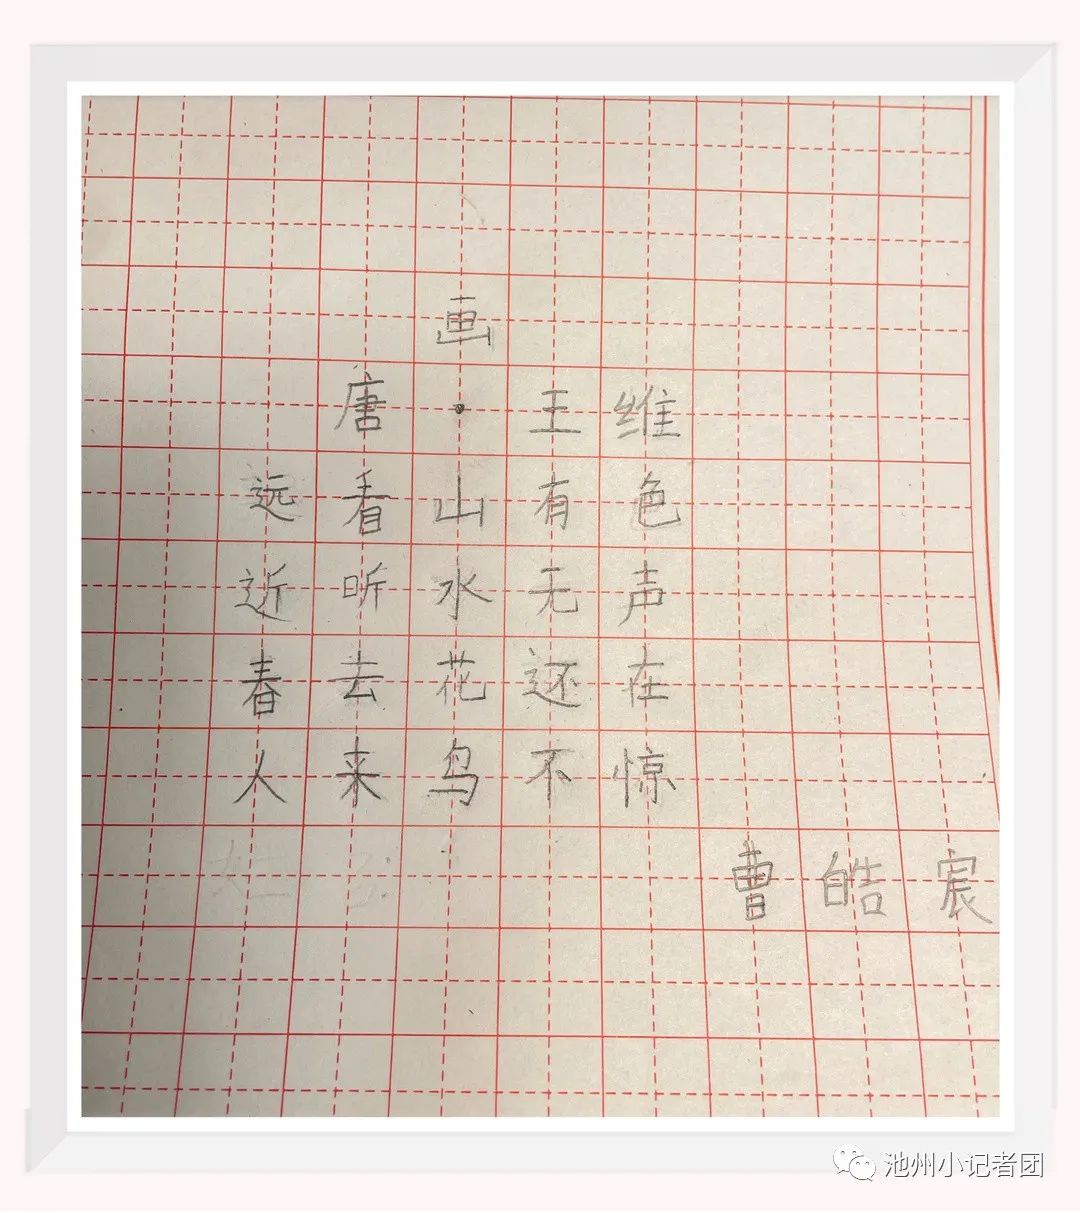 画
唐·王维
远看山有色
近听水无声
春去花还在
人来鸟不惊
曹皓宸
池州小记者团